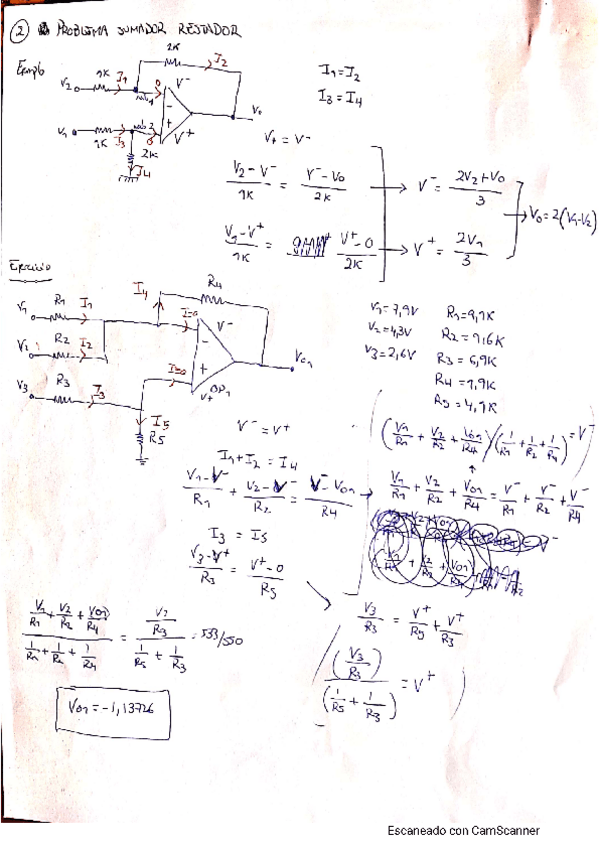 ② PROBLEMA SUMADOR RESTADOR
Ejemplo
2K
I2
V2
1K
I1
0
V-
V0
V1
1K
I3
0
V+
2K
I4
I1=I2
I3=I4
V+ = V-
V2-V- / 1K = V- - V0 / 2K → V- = 2V2+V0 / 3
V1-V+ / 1K = V+-0 / 2K → V+ = 2V1 / 3
→ V0=2(V1-V2)
Ejercicio
I4
R4
V1
R1
I1
I=0
V-
V2
R2
I2
V01
V3
R3
I3
I=0
V+
OP1
I5
R5
V1=7,9V R1=9,1K
V2=4,3V R2=9,6K
V3=2,6V R3=6,9K
R4=1,9K
R5=4,9K
(V1/R1 + V2/R2 + V01/R4)/(1/R1 + 1/R2 + 1/R4) = V-
V- = V+
I1+I2 = I4
V1-V- / R1 + V2-V- / R2 = V- - V01 / R4 → V1/R1 + V2/R2 + V01/R4 = V-/R1 + V-/R2 + V-/R4
I3 = I5
V3-V+ / R3 = V+-0 / R5
V3/R3 = V+/R5 + V+/R3
(V3/R3) / (1/R5 + 1/R3) = V+
V1/R1 + V2/R2 + V01/R4 / 1/R1 + 1/R2 + 1/R4 = V2/R3 / 1/R5 + 1/R3 = 533/550
V01 = -1,13726
Escaneado con CamScanner